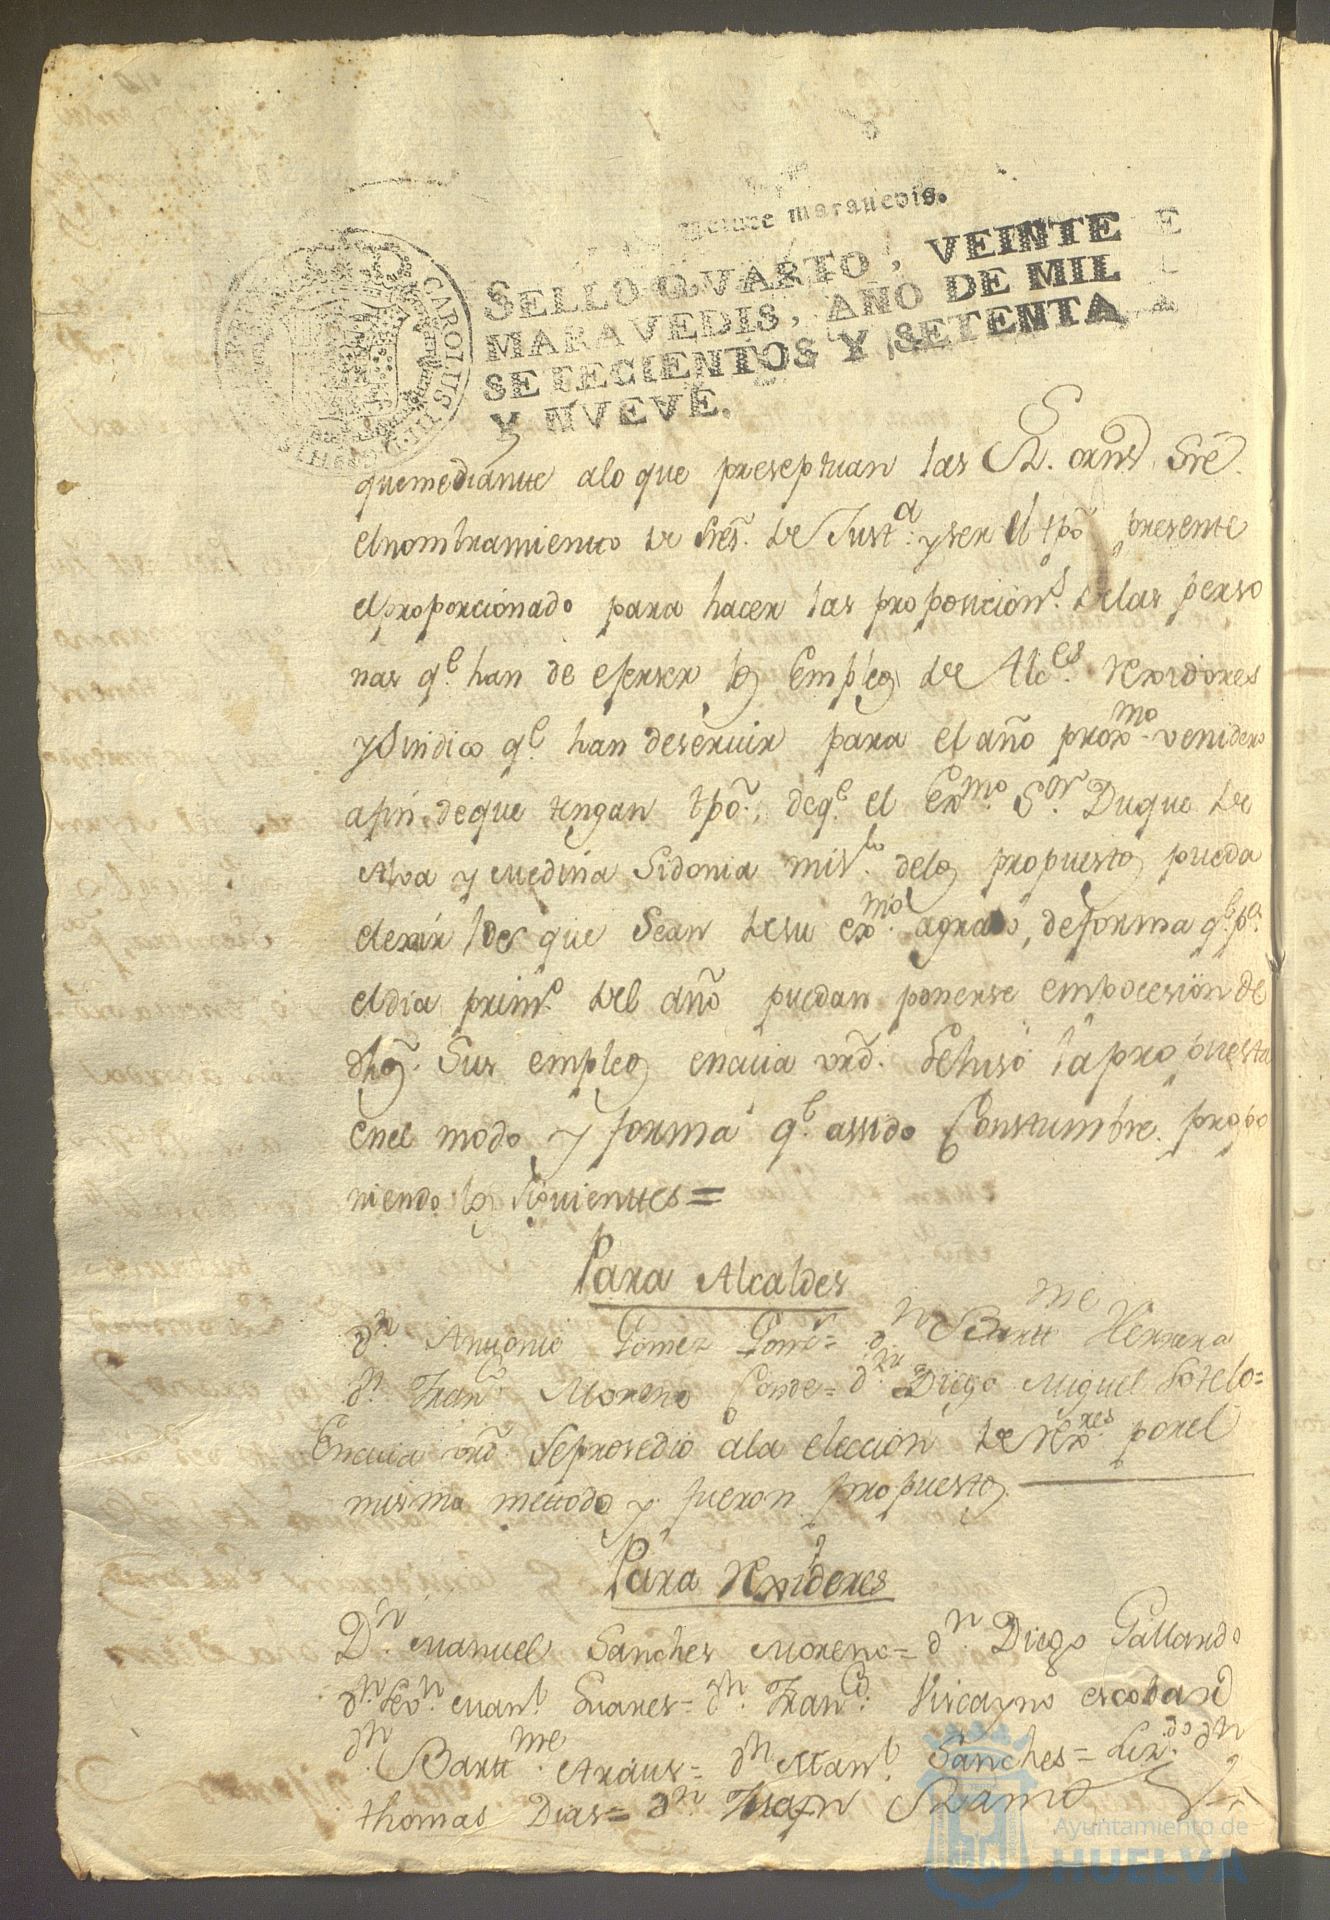 Veinte marauedis.
SELLO QVARTO, VEINTE
MARAVEDIS, AÑO DE MIL
SETECIENTOS Y SETENTA
Y NVEVE.
CAROLUS
quemediante alo que preseptuan las Rs. ornẽs Sre.
elnombramiento de Sres. de Justa. yser el tpõ presente
elproporcionado para hacer las proposicions. delas perso
nas qe. han de eferser los Empleos de Alces. rexidores
ySindico qe han deseruir para el año proxmo. venidero
afin. deque tengan tpõ. deqe. el Exmo. Sor. Duque de
Alva y Medina Sidonia delos propuestos pueda
elexir los que Sean desu exma. agrado, deforma qe. pa.
eldia primo. del año puedan ponerse emposesion de
dhõs. Sus empleos encuia vrd. Sehiso la propuesta
enel modo y forma qe. assido Constumbre. propo
niendo los siguienttes=
Para Alcaldes
dn. Anttonio Gomez = dn Bartme Herrera
dn. Franco. Moreno Conde= dn. Diego Miguel Sotelo=
Encuia vrd Seprosedio ala eleccion de Rexres. porel
mismo mettodo y fueron propuestos
Para Rexidores
Dn. Manuel Sanches Moreno= dn. Diego Gallardo
dn. Manl. Suares= dn. Franco. Viscayno escobar
dn. Barttme. Araus= dn. Manl. Sanches= Lizdo. dn
thomas Dias= dn. Ramos
Ayuntamiento de
HUELVA